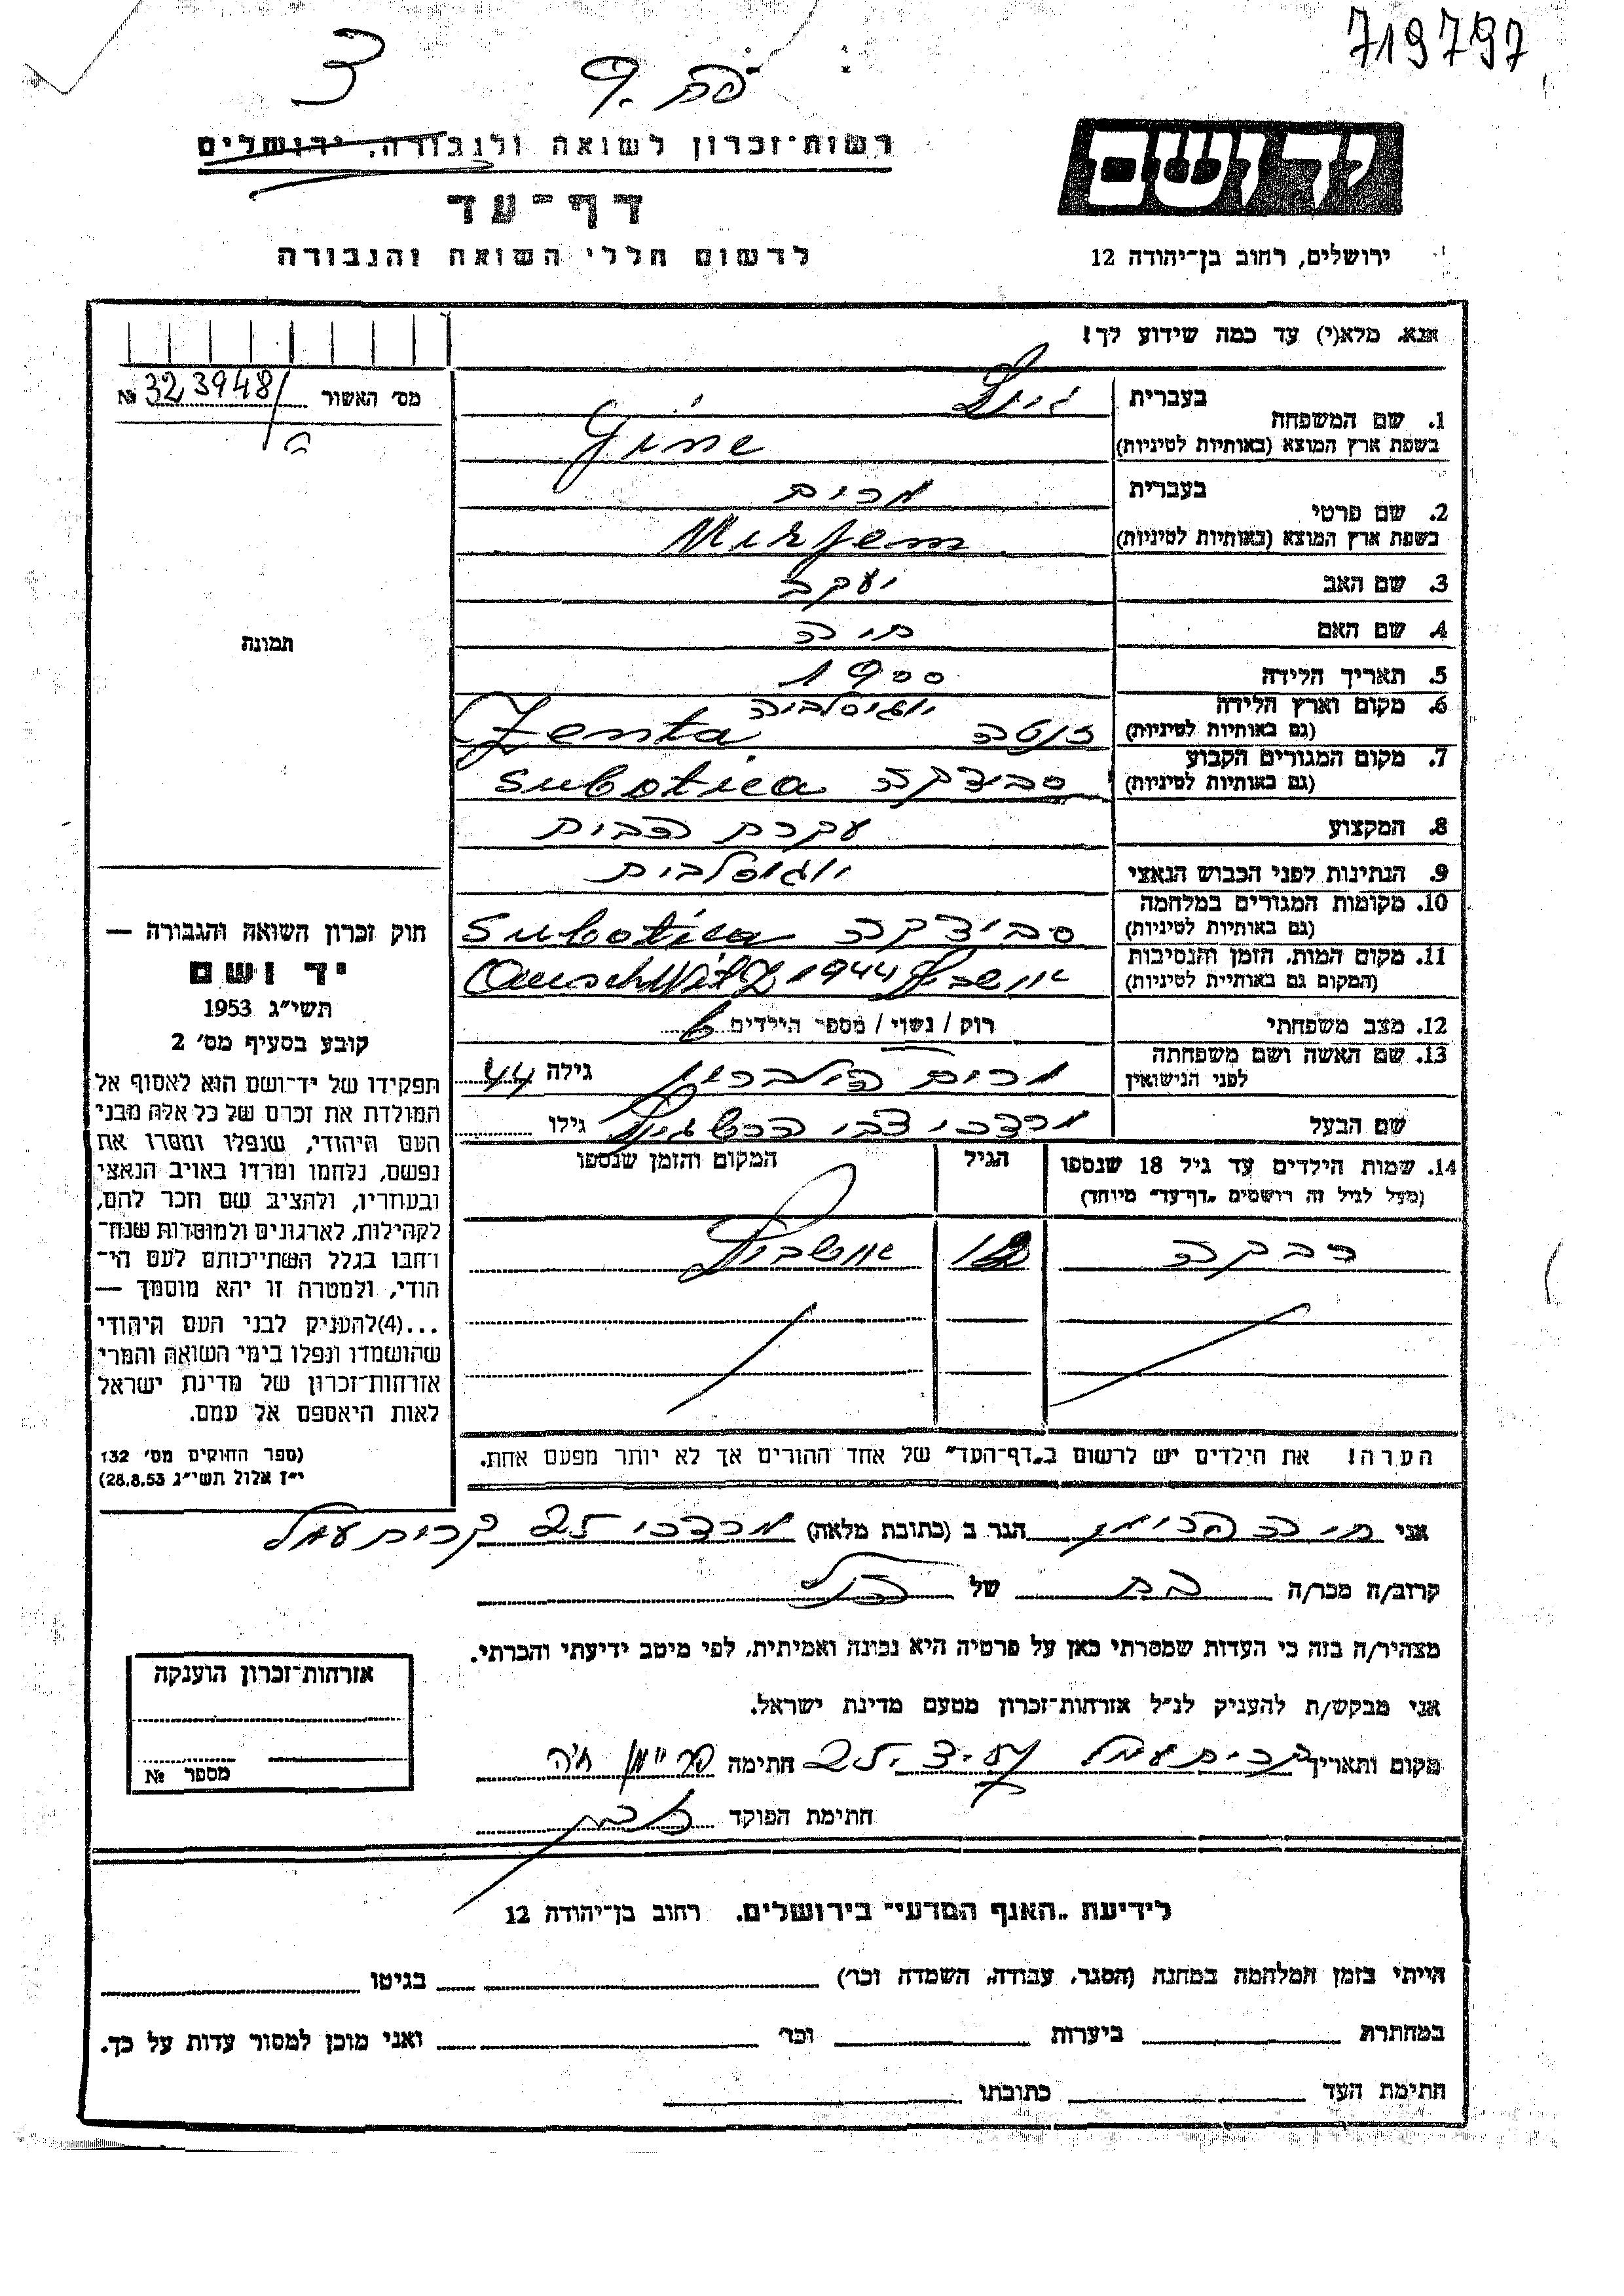 719797
3
יד ושם
רשות־זכרון לשואה ולגבורה, ירושלים
דף־עד
לרשום חללי השואה והגבורה
ירושלים, רחוב בן־יהודה 12
אנא, מלא(י) עד כמה שידוע לך!
מס׳ האשור № 323948/
1. שם המשפחה
בעברית
בשפת ארץ המוצא (באותיות לטיניות) Gíne
2. שם פרטי
בעברית מרים
בשפת ארץ המוצא (באותיות לטיניות) Mirjem
3. שם האב יעקב
4. שם האם חיה
5. תאריך הלידה 1900
6. מקום וארץ הלידה יוגוסלביה
(גם באותיות לטיניות) זנטה Zenta
7. מקום המגורים הקבוע
(גם באותיות לטיניות) סביצקה Subotica
8. המקצוע עקרת הבית
9. הנתינות לפני הכבוש הנאצי יוגוסלבית
10. מקומות המגורים במלחמה
(גם באותיות לטיניות) סביצקה Subotica
11. מקום המות, הזמן והנסיבות
(המקום גם באותיית לטיניות) אושביץ 1944 Auschwitz
12. מצב משפחתי רוק / נשוי / מספר הילדים 6
13. שם האשה ושם משפחתה
לפני הנישואין מרים גילה 44
שם הבעל מרדכי צבי גילו
14. שמות הילדים עד גיל 18 שנספו
(מעל לגיל זה רושמים „דף־עד״ מיוחד)
הגיל
המקום והזמן שנספו
רבקה 12 אושביץ
הערה! את הילדים יש לרשום ב„דף־העד״ של אחד ההורים אך לא יותר מפעם אחת.
תמונה
חוק זכרון השואה והגבורה —
יד ושם
תשי״ג 1953
קובע בסעיף מס׳ 2
תפקידו של יד־ושם הוא לאסוף אל
המולדת את זכרם של כל אלה מבני
העם היהודי, שנפלו ומסרו את
נפשם, נלחמו ומרדו באויב הנאצי
ובעוזריו, ולהציב שם וזכר להם,
לקהילות, לארגונים ולמוסדות שנח־
רבו בגלל השתייכותם לעם הי־
הודי, ולמטרה זו יהא מוסמך —
...(4)להעניק לבני העם היהודי
שהושמדו ונפלו בימי השואה והמרי
אזרחות־זכרון של מדינת ישראל
לאות היאספם אל עמם.
(ספר החוקים מס׳ 132
י״ז אלול תשי״ג 28.8.53)
אני חיה פריימן הגר ב (כתובת מלאה) מרדכי 25 קרית עמל
קרוב/ה מכר/ה בת של הנ״ל
מצהיר/ה בזה כי העדות שמסרתי כאן על פרטיה היא נכונה ואמיתית, לפי מיטב ידיעתי והכרתי.
אני מבקש/ת להעניק לנ״ל אזרחות־זכרון מטעם מדינת ישראל.
מקום ותאריך קרית עמל חתימה פריימן חיה
חתימת הפוקד
אזרחות־זכרון הוענקה
מספר №
לידיעת „האגף המדעי״ בירושלים, רחוב בן־יהודה 12
הייתי בזמן המלחמה במחנה (הסגר, עבודה, השמדה וכו׳) בגיטו
במחתרת ביערות וכו׳ ואני מוכן למסור עדות על כך.
חתימת העד כתובתו